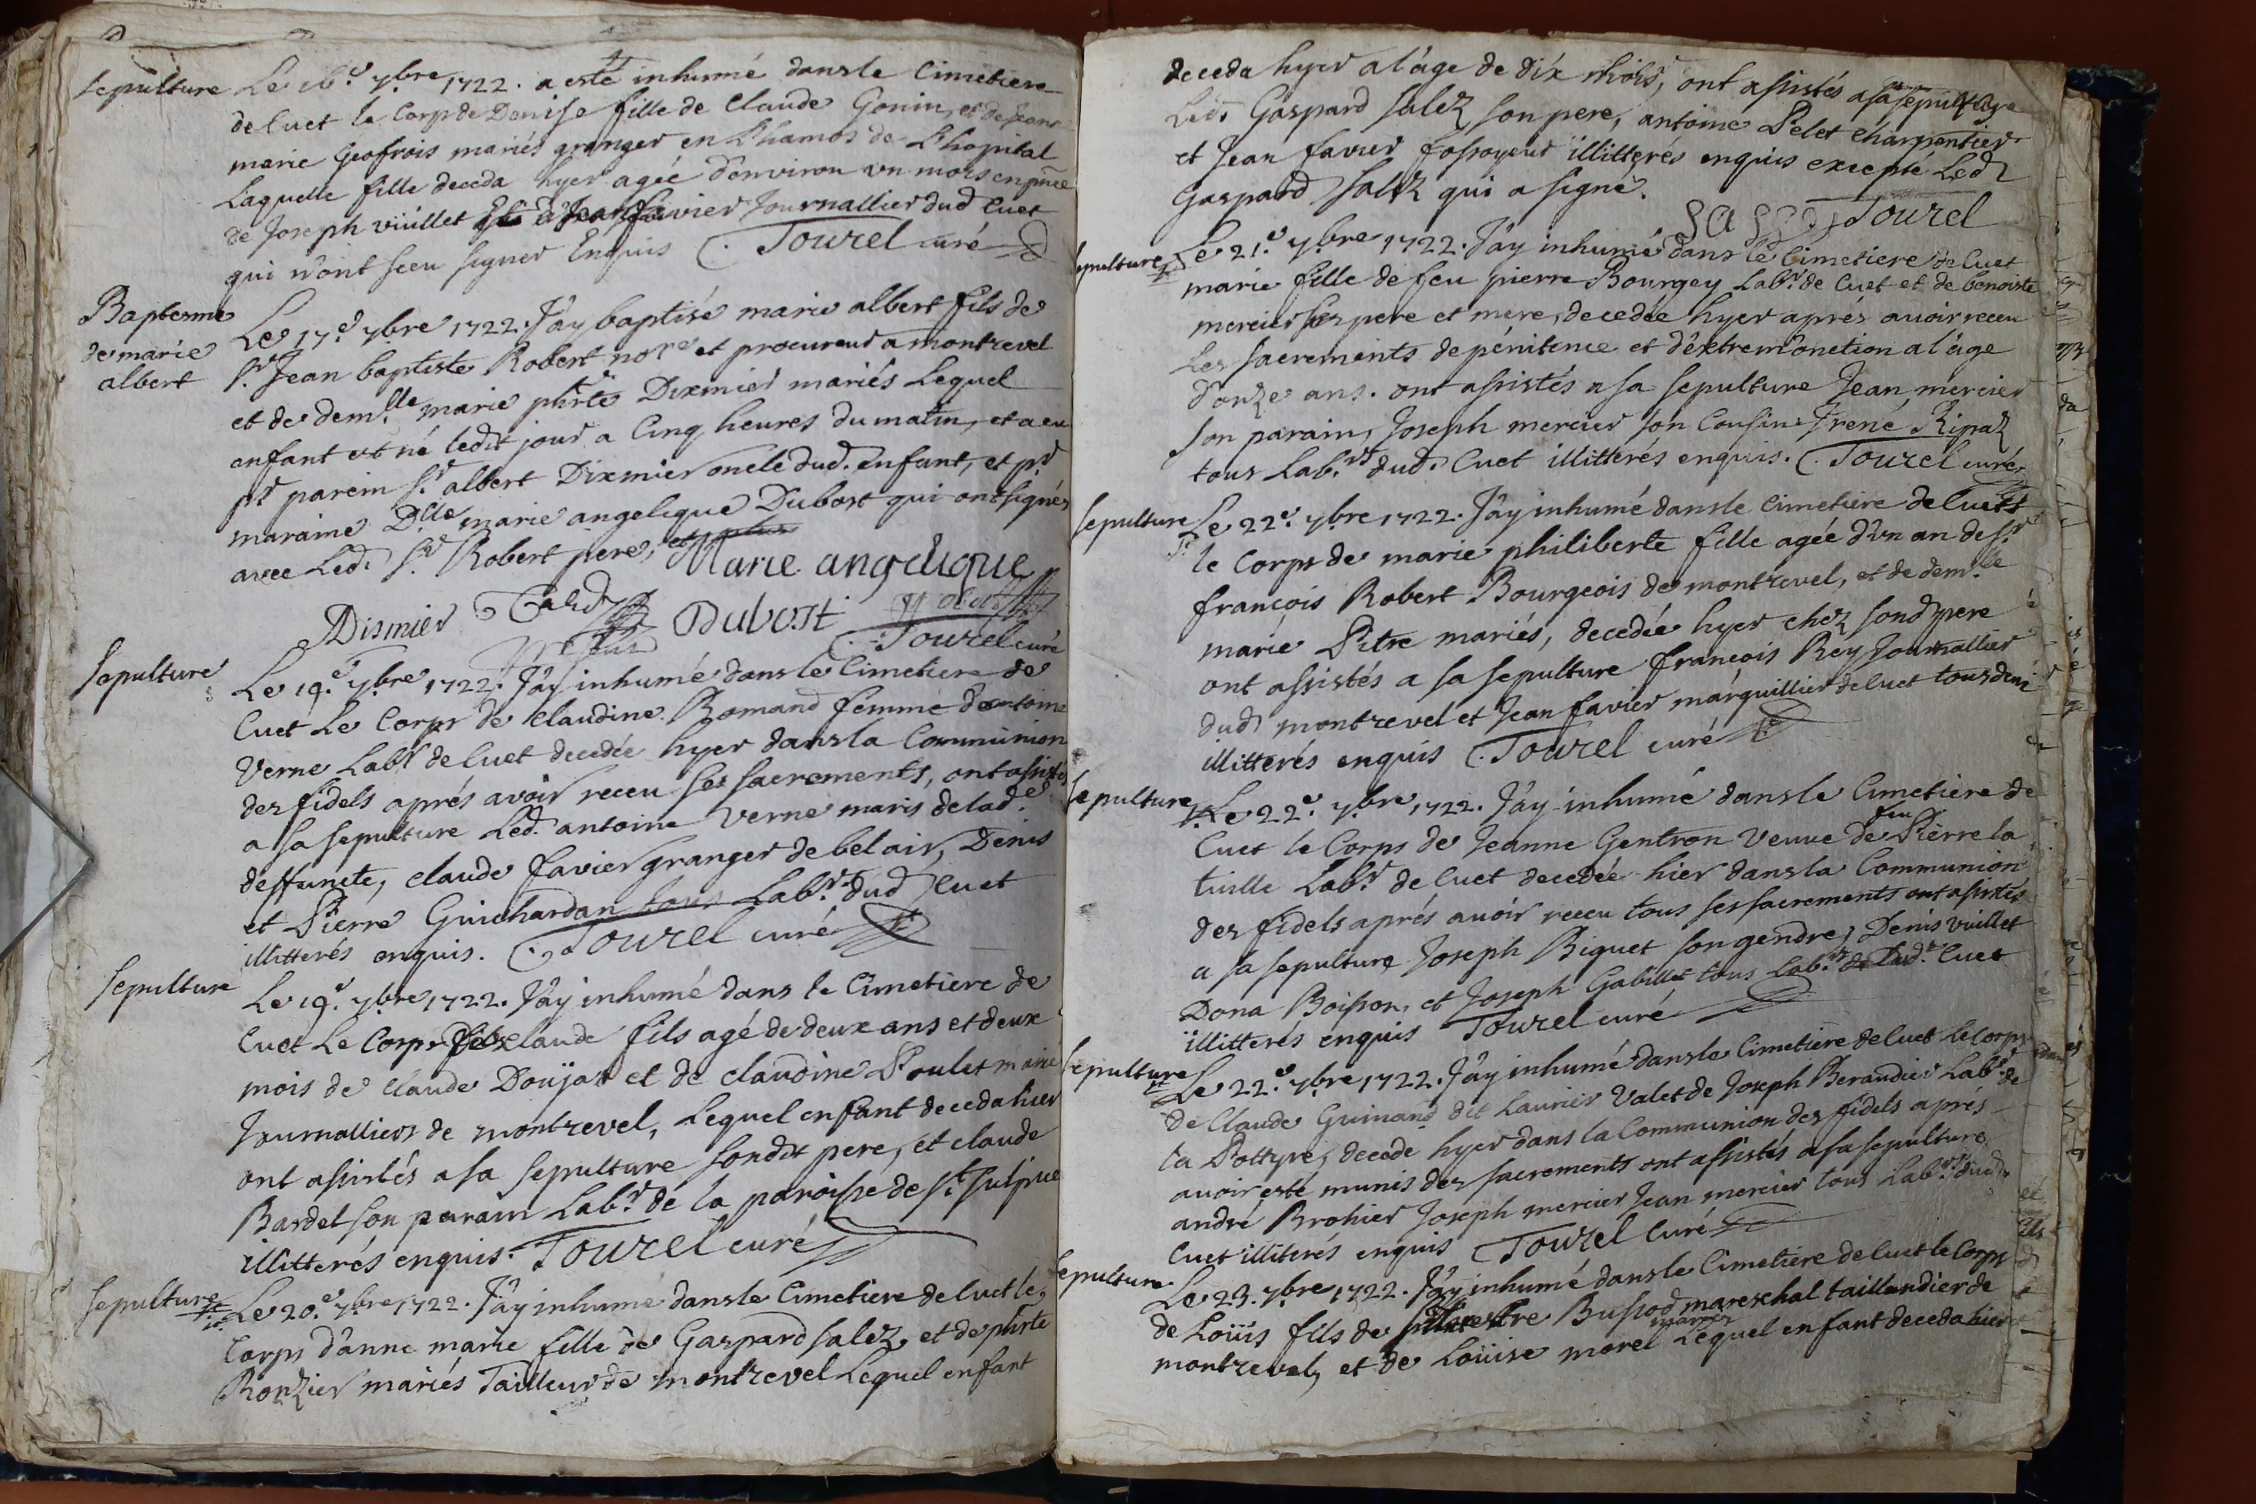 sepulture
Le 16.e 7bre 1722. a esté inhumé dans le Cimetiere
de Cuet le Corps de Denise fille de Claude Gonin, et de Jeane
marie Geofrois mariés granger en Chamos de Lhopital
Laquelle fille deceda hyer agée d'environ un mois en pnce
de Joseph viüillet et Jean favier Journallier dud Cuet
qui n'ont sceu signer Enquis Tourel curé
Baptesme
de marie
albert
Le 17.e 7bre 1722. J'ay baptisé marie albert fils de
sr. Jean baptiste Robert nore et procureur a montrevel
et de demlle marie phrte Dixmier mariés Lequel
enfant est né ledit jour a Cinq heures du matin, et a eu
pr parein sr. albert Dixmier oncle dud. enfant, et pr
maraine Dlle marie angelique Dubost qui ont signés
avec Led. sr. Robert pere,
Marie angelique
Dismier Dubost
Tourel curé
sepulture
Le 19.e 7bre 1722. J'ay inhumé dans le Cimetiere de
Cuet Le Corps de Claudine Romand femme d'antoine
Verne Labr de Cuet decedée hyer dans la Communion
des fidels aprés avoir receu ses sacrements, ont assistés
a sa sepulture Led. antoine Verne maris de lad.e
deffuncte, claude favier granger de belair, Denis
et Pierre Guichardan tous Labrs dud Cuet
illitterés enquis. Tourel curé
sepulture
Le 19.e 7bre 1722. J'ay inhumé dans le Cimetiere de
Cuet Le Corps de claude fils agé de deux ans et deux
mois de Claude Doüjat et de claudine Poulet mariés
Journalliers de montrevel, Lequel enfant deceda hier
ont assistés a sa sepulture sondt pere, et claude
Bardet son parain Labr. de la paroisse de st sulpice
illitterés enquis. Tourel curé
sepulture
Le 20.e 7bre 1722. J'ay inhumé dans le Cimetiere de Cuet le
Corps d'anne marie fille de Gaspard salez et de phrte
Ronzier mariés Tailleur de montrevel Lequel enfant
deceda hyer a l'age de dix mois, ont assistés a sa sepulture
Led. Gaspard salez son pere, antoine Pelet charpentier
et Jean favier fossoyeur illitterés enquis excepté Led
Gaspard salez qui a signé.
Tourel
sepulture
Le 21.e 7bre 1722. J'ay inhumé dans le Cimetiere de Cuet
marie fille de feu pierre Bourgey Labr. de Cuet et de benoiste
mercier ses pere et mere, decedée hyer aprés avoir receu
Les sacrements de pénitence et d'extrem'onction a l'age
d'onze ans. ont assistés a sa sepulture Jean mercier
son parain, Joseph mercier son Cousin Irené Ripaz
tous Labrs dud. Cuet illitterés enquis. Tourel curé
sepulture
Le 22.e 7bre 1722. J'ay inhumé dans le Cimetiere de Cuet
le Corps de marie philiberte fille agée d'un an de sr
françois Robert Bourgeois de montrevel, et de demlle
marie Pitre mariés, decedée hyer chez sond pere
ont assistés a sa sepulture françois Rey Journallier
dud montrevel et Jean favier marguillier de Cuet tous deux
illitterés enquis Tourel curé
sepulture
Le 22.e 7bre 1722. J'ay inhumé dans le Cimetiere de
Cuet le Corps de Jeanne Gentron veuve de feu Pierre la
tuille Labr de Cuet decedée hier dans la Communion
des fidels aprés avoir receu tous ses sacrements ont assistés
a sa sepulture Joseph Biguet son gendre, Denis vuillet
Dona Boisson, et Joseph Gabillet tous Labrs de dud. Cuet
illitterés enquis Tourel curé
sepulture
Le 22.e 7bre 1722. J'ay inhumé dans le Cimetiere de Cuet le Corps
de Claude Guinand dit Laurier Valet de Joseph Beraudier Labr de
la Pottyre, decede hyer dans la Communion des fidels aprés
avoir esté munis des sacrements ont assistés a sa sepulture
andré Brohier Joseph mercier Jean mercier tous Labrs dud
Cuet illiterés enquis Tourel Curé
sepulture
Le 23. 7bre 1722. J'ay inhumé dans le Cimetiere de Cuet le Corps
de Loüis fils de silvestre Bussod mareschal taillandier de
montrevel, et de Loüise morel mariés Lequel enfant deceda hier